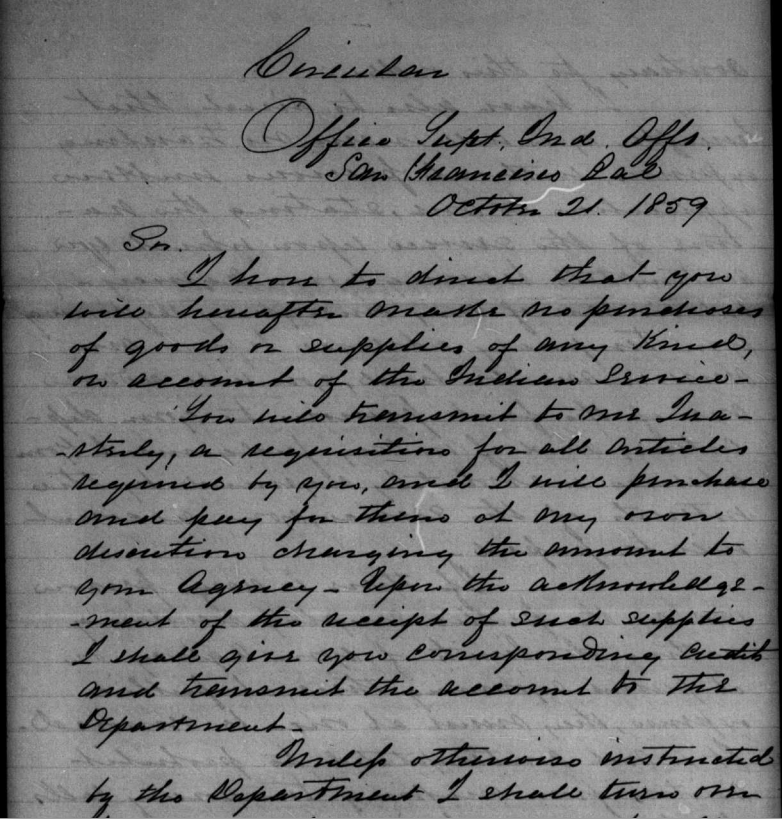 Circular
Office Supt. Ind. Affs.
San Francisco Cal
October 21. 1859
Sir.
I have to direct that you
will hereafter make no purchases
of goods or supplies of any Kind,
on account of the Indian Service-
You will transmit to me Qua-
-rterly, a requisition for all articles
required by you, and I will purchase
and pay for them at my own
discretion charging the amount to
your Agency- Upon the acknowledge-
-ment of the receipt of such supplies
I shall give you corresponding credit
and transmit the account to the
Department-
Unless otherwise instructed
by the Department I shall turn over